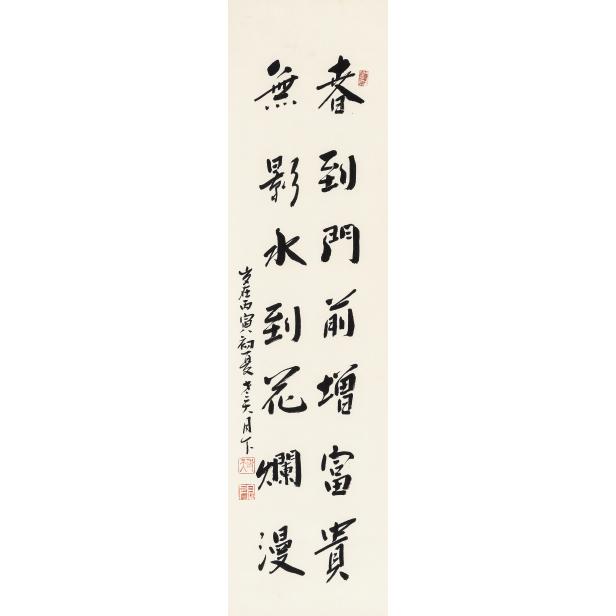 春到門前增富貴
無影水到花爛漫
歲在丙寅初夏老天月下